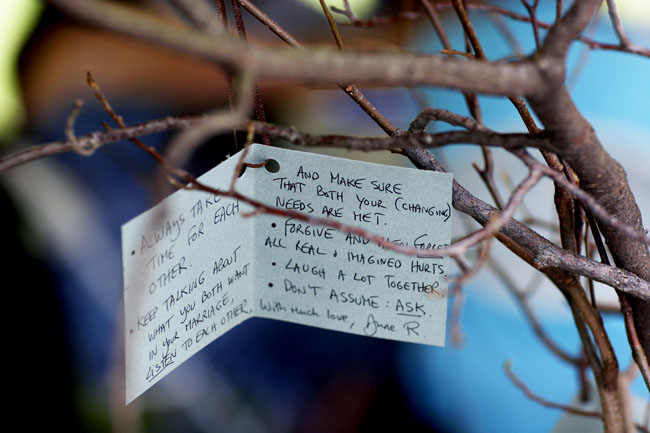 • ALWAYS TAKE
TIME FOR EACH
OTHER.
• KEEP TALKING ABOUT
WHAT YOU BOTH WANT
IN YOUR MARRIAGE,
LISTEN TO EACH OTHER,
AND MAKE SURE
THAT BOTH YOUR (CHANGING)
NEEDS ARE MET.
• FORGIVE AND THEN FORGET
ALL REAL & IMAGINED HURTS.
• LAUGH A LOT TOGETHER
• DON'T ASSUME: ASK.
With much love, June R.